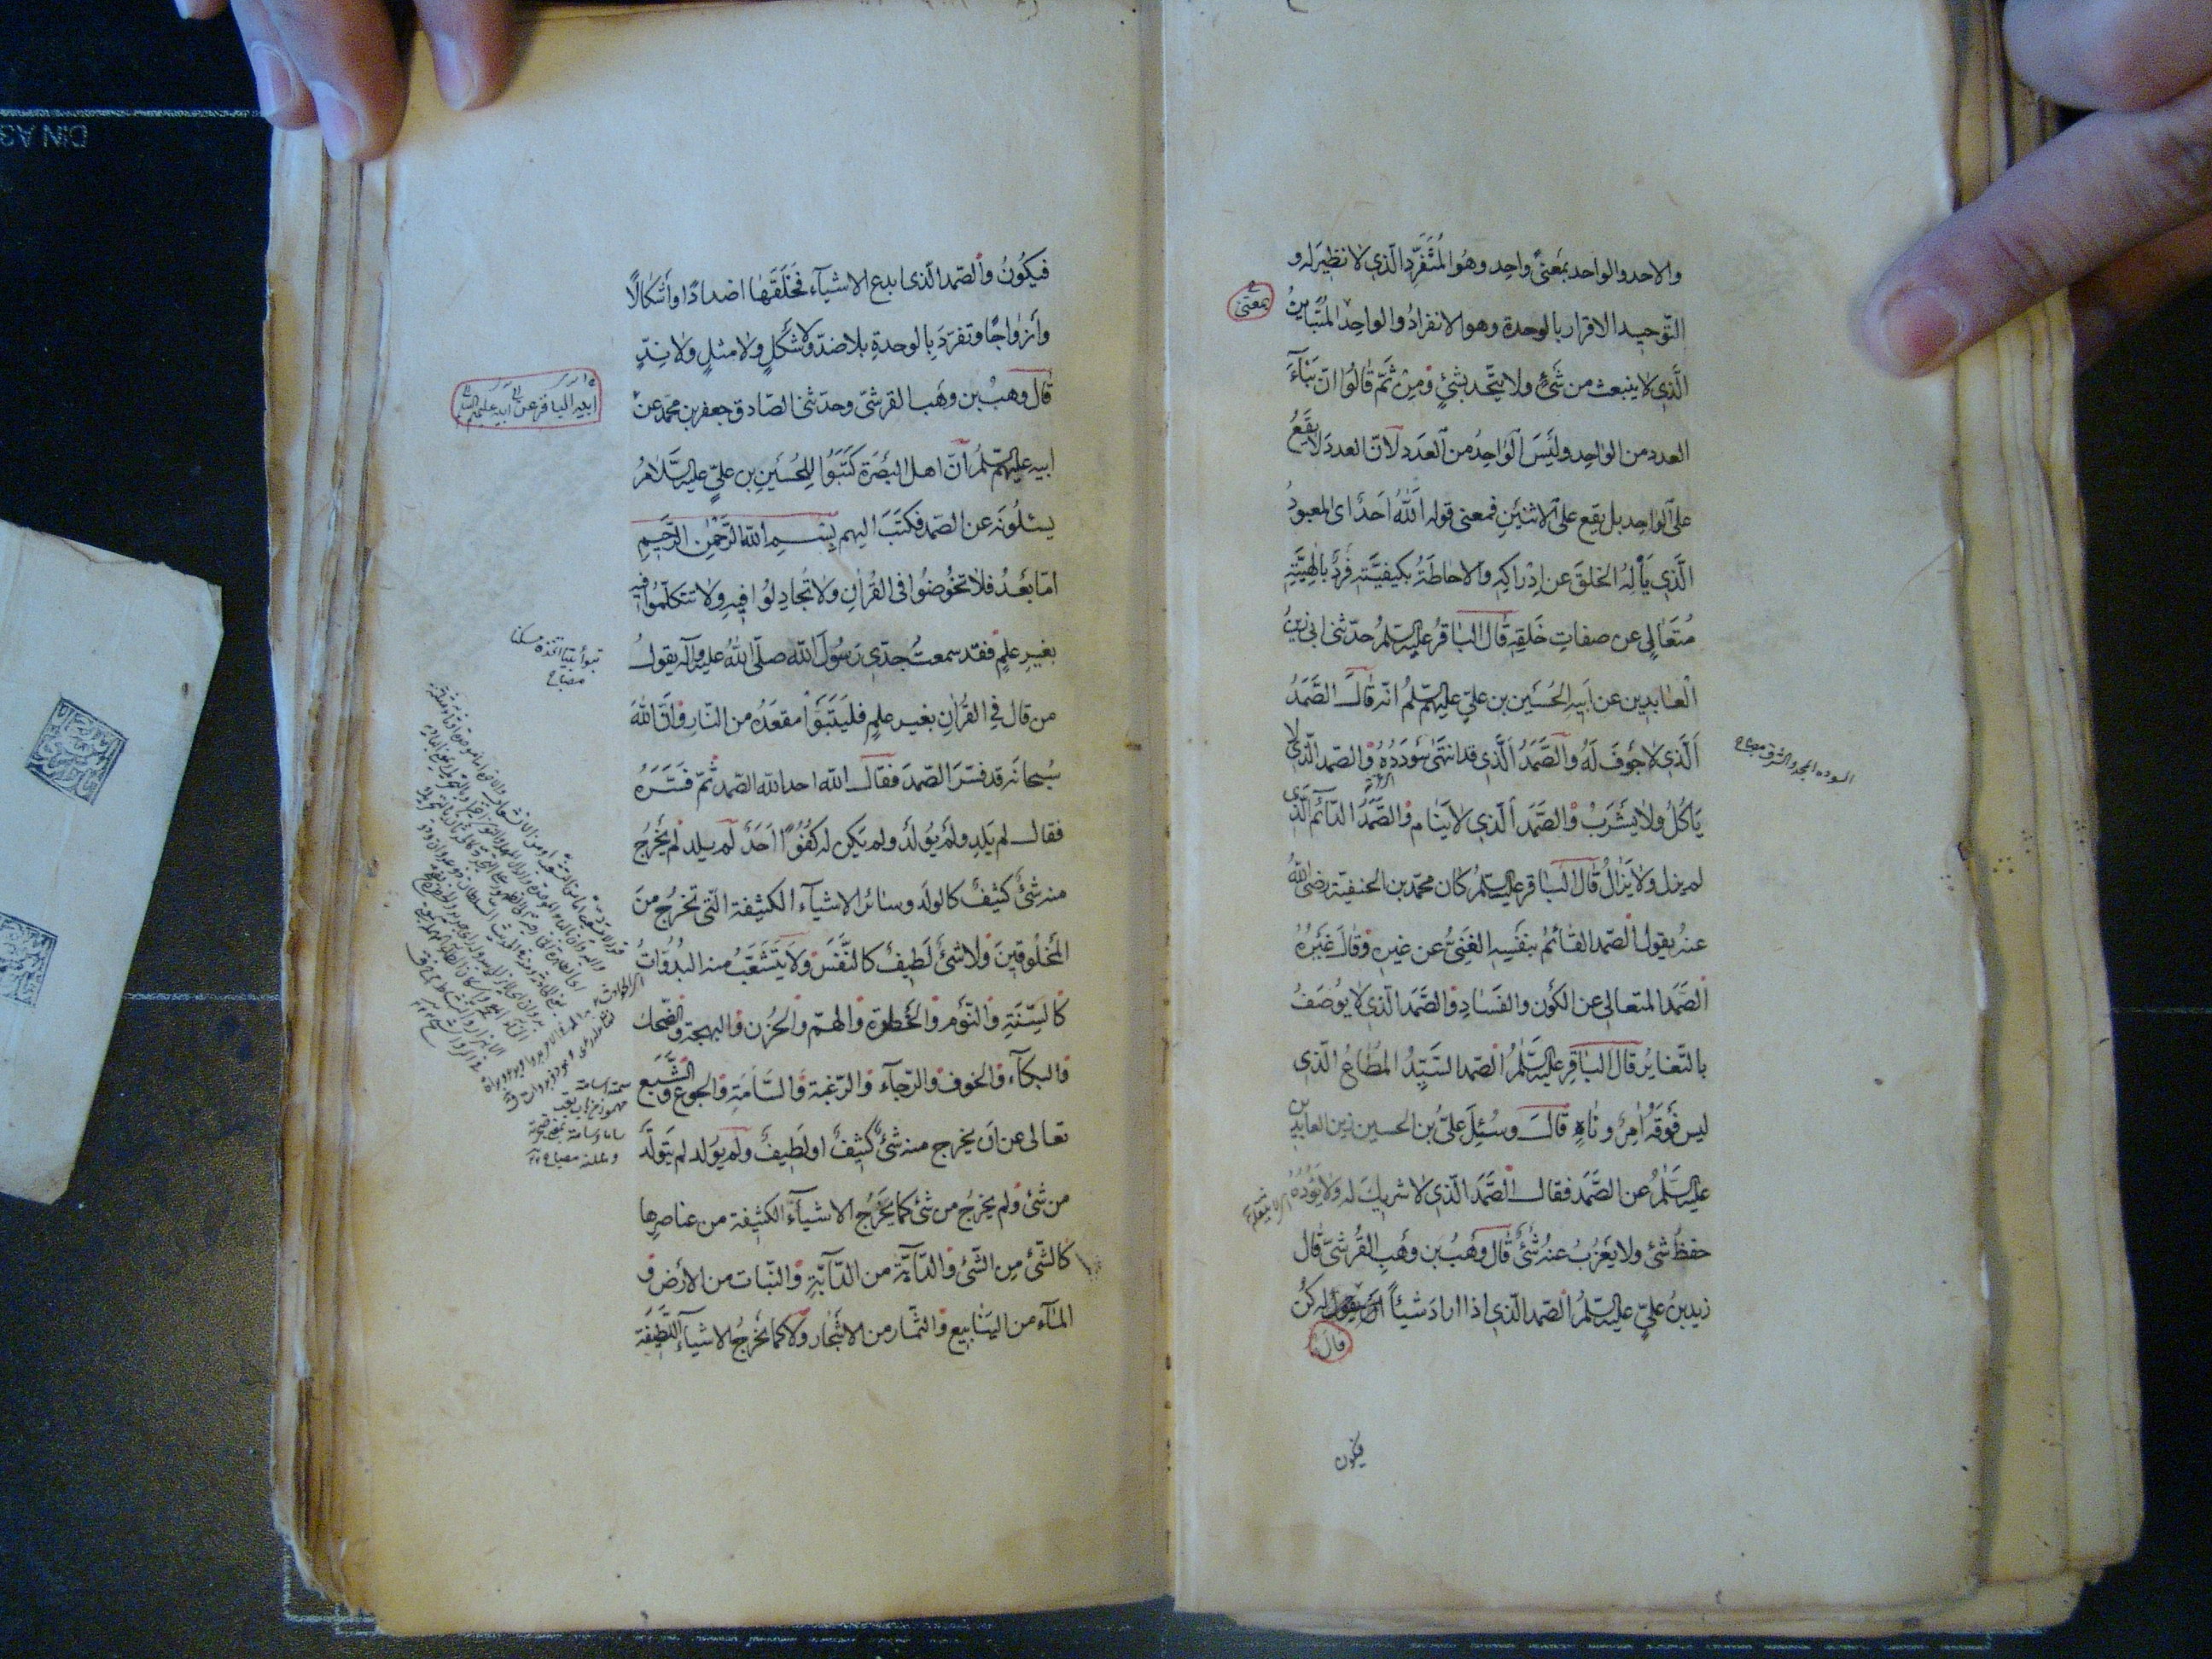 والاحد والواحد بمَعنىً واحِد وهُوَ المُتَفَرِّد الّذي لا نظيرَ له و
بمعنى
التّوحيد الاقرار بالوحدة وهو الانفرادُ والواحِد المُتَبايِنُ
الَّذي لا ينبعث من شَيءٍ ولا يتّحد بشيءٍ ومِن ثَمّ قالُوا انّ بَنآءَ
العدد من الواحِد ولَيسَ الوٰاحِدُ من العَدَد لأنّ العددَ لا يَقَعُ
على الواحِد بل يقع على الاثنَينِ فمعنى قوله اَللهُ اَحَدٌ اى المعبودُ
الَّذي يَألَهُ الخلقُ عن اِدْراكِهِ والاحاطَةُ بكيفيّتِه فَردٌ بالهِيَّتِهِ
مُتَعٰالٍ عن صفاتِ خَلقِهِ قالَ البٰاقرُ عليه السّلمُ حدّثنى ابى زينُ
العٰابدين عن اَبيهِ الحُسَين بن عليّ عليهم السّلمُ انّه قٰالَ الصَّمَدُ
اَلَّذي لا جَوفَ لَهُ والصَّمَدُ اَلَّذي قد انتَهىٰ سُؤدَدُهُ والصّمد الّذى لا
السودد المجد والشرف مصباح
يَاكُلُ ولا يشَرَبُ والصَّمَد اَلّذي لا يَنٰام والصَّمَدُ الدّآئم الّذى
لم يزل ولا يَزٰالُ قٰالَ البٰاقر عليه السّلمُ كان محمّد بن الحنفيّة رضى اللهُ
عنهُ يقول الصّمد القٰائمُ بنفَسِهِ الغَنِيُّ عن غيرِه وقالَ غَيرُهُ
الصَّمَد المتعالى عن الكَون والفَسٰادِ والصَّمَد الّذي لا يوُصَفُ
بالتَّغايُر قالَ البٰاقِر عليه السَّلمُ الصّمد السَّيِّدُ المُطٰاعُ الّذى
ليس فَوقَهُ اٰمِرٌ ونٰاهٍ قٰالَ وسُئِلَ علىُّ بن الحسين زين العابدين
عليه السَّلمُ عن الصَّمَد فقالَ الصَّمَد الّذى لا شريكَ له ولا يَؤُدُهُ
حفظُ شئ ولا يعَزُبُ عنهُ شَئٌ قٰالَ وَهَبُ بن وَهَبِ القُرشىّ قٰالَ
زيد بنُ علىٍّ عليه السّلمُ الصّمد الّذى اذا اراد شيئاً ان يقول له كن
قالَ
فيكون
فيكُونُ والصّمد الّذى ابدع الاشيآء فخَلَقَها اضدادًا واَشكٰالاً
وازواجًا وتفرّدَ بِالوحدةِ بلا ضدّ ولا شكلٍ ولا مثلٍ ولا نِدٍّ
قٰالَ وهبُ بن وهَب القرشىّ وحدّثنى الصّادق جعفر بن محمّد عن
ابيه الباقر عن ابيه عليهم السلم
ابيه عليهم السّلمُ اَنّ اهل البَصْرَة كَتَبوُا للِحُسَينِ بن علىٍّ عليه السّلامُ
يسئلُونَه عن الصّمد فكتَبَ اليهم بِسمِ اللهِ الرَّحمٰنِ الرَّحيم
امّا بعَدُ فلا تخوُضوُا فى القُرآنِ ولا تُجادِلوُا فيهِ ولا تتكلّموُا فيه
تبوأ بيتا اتخذه مسكنا
مصباح
بغيرِ علمٍ فقد سمعتُ جدّى رَسوُلَ الله صلّى اللهُ عليه وآله يقولُ
من قال فى القُرآنِ بغير علمٍ فليَتَبَوّأ مقعَدَهُ من النّار وانّ اللهَ
سُبحانَه قد فسّرَ الصّمدَ فقالَ الله احد الله الصّمد ثمّ فَسَّرَهُ
فقال لم يَلِد ولَم يوُلَد ولم يَكن له كُفُوًا اَحَدٌ لَم يلد لم يَخَرج
منه شئٌ كثيفٌ كالولد وسائر الاشيآء الكثيفة الّتى تخرجُ منَ
المَخلوُقينَ ولا شئٌ لَطيفٌ كالنَّفَس ولا يَتَشَعَّبُ منه البَدَوٰاتُ
كالسِّنَةِ والنّوُم والخَطرة والهَمّ والحُزن والبهجة والضّحك
والبكآء والخوف والرّجآء والرّغبة والسّأمةِ والجوع والشَّبَع
تعالى عن ان يخرج منه شئٌ كثيفٌ او لَطيفٌ ولَم يوُلد لم يَتَولّد
من شَئ ولم يخرج من شئ كما يَخُرج الاشيآء الكثيفة من عناصرِها
كالشّئ مِن الشّئ والدّآبّة من الدّآبّةِ والنّبات من الارض و
المآء من الينٰابيع والثّمار من الاشجٰار ولا كما يَخرجُ الاشيآء اللّطيفَة